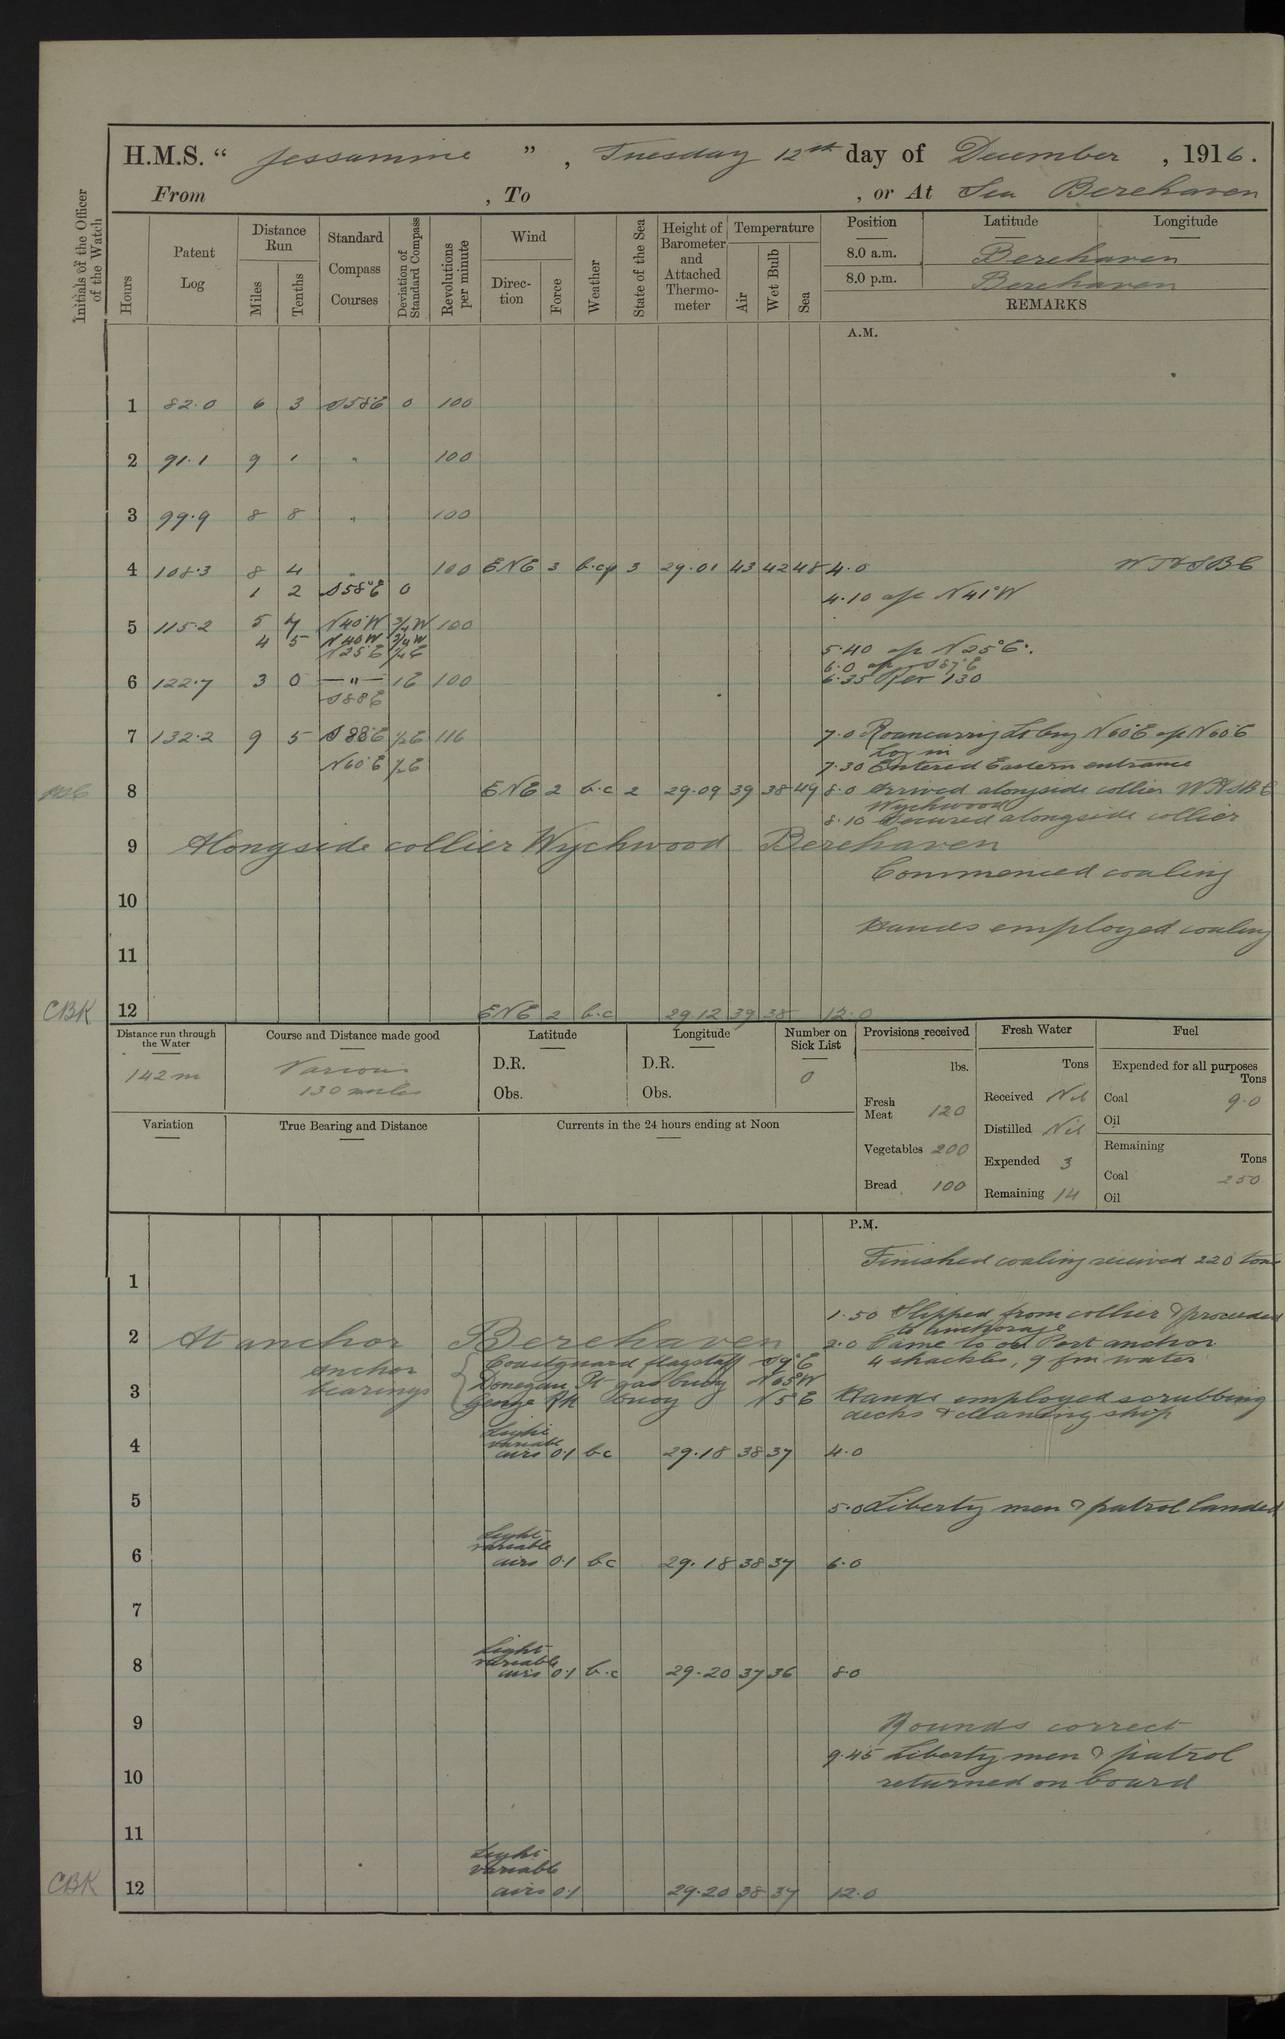 H.M.S. “ Jessamine ” , Tuesday 12th day of December , 1916.
From , To , or At Sea Berehaven
Initials of the Officer of the Watch
Hours
Patent Log
Distance Run
Miles
Tenths
Standard Compass Courses
Deviation of Standard Compass
Revolutions per minute
Wind
Direction
Force
Weather
State of the Sea
Height of Barometer and Attached Thermometer
Temperature
Air
Wet Bulb
Sea
Position Latitude Longitude
8.0 a.m. Berehaven
8.0 p.m. Berehaven
REMARKS
A.M.
1 82.0 6 3 S58°E 0 100
2 91.1 9 1 " 100
3 99.9 8 8 " 100
4 108.3 8 4 " 100 ENE 3 b.cq 3 29.01 43 42 48 4.0 WTHSBE
1 2 S58°E 0
4.10 a/c N41°W
5 115.2 5 7 N40°W 3/4W 100
4 5 N40W 3/4W
N25°E 1/4E
5.40 a/c N25°E.
6.0 a/c S87°E
6 122.7 3 0 —"— 1E 100 6.35 Rev 130
S88E
7 132.2 9 5 S88°E 1/2E 116 7.0 Roancarrig Lt brg N60°E a/c N60°E
Log in
N60°E 1/2E 7.30 Entered Eastern entrance
8 ENE 2 b.c 2 29.09 39 38 49 8.0 Arrived alongside collier
Wychwood
8.10 Secured alongside collier
9 Alongside collier Wychwood Berehaven
Commenced coaling
10
Hands employed coaling
11
CBK 12 ENE 2 b.c 29.12 39 38 12.0
Distance run through the Water
142 m
Course and Distance made good
Various
130 miles
Latitude
D.R.
Obs.
Longitude
D.R.
Obs.
Number on Sick List
0
Provisions received
lbs.
Fresh Meat 120
Vegetables 200
Bread 100
Fresh Water
Tons
Received Nil
Distilled Nil
Expended 3
Remaining 14
Fuel
Expended for all purposes
Tons
Coal 9.0
Oil
Remaining
Tons
Coal 250
Oil
Variation
True Bearing and Distance
Currents in the 24 hours ending at Noon
P.M.
Finished coaling received 220 tons
1
1.50 Slipped from collier & proceeded
to anchorage
2 At anchor Berehaven 2.0 Came to Port anchor
4 shackles, 9 fm water
anchor bearings
Coastguard flagstaff S9°E
Donegan Pt gas buoy N65°W
George Rk buoy N5°E
3 Hands employed scrubbing
decks & cleaning ship
Light
variable
4 airs 0.1 b.c 29.18 38 37 4.0
5 5.0 Liberty men & patrol landed
Light
variable
6 airs 0.1 b.c 29.18 38 37 6.0
7
Light
variable
8 airs 0.1 b.c 29.20 37 36 8.0
9 Rounds correct
9.45 Liberty men & patrol
10 returned on board
11
Light
variable
CBK 12 airs 0.1 29.20 38 37 12.0